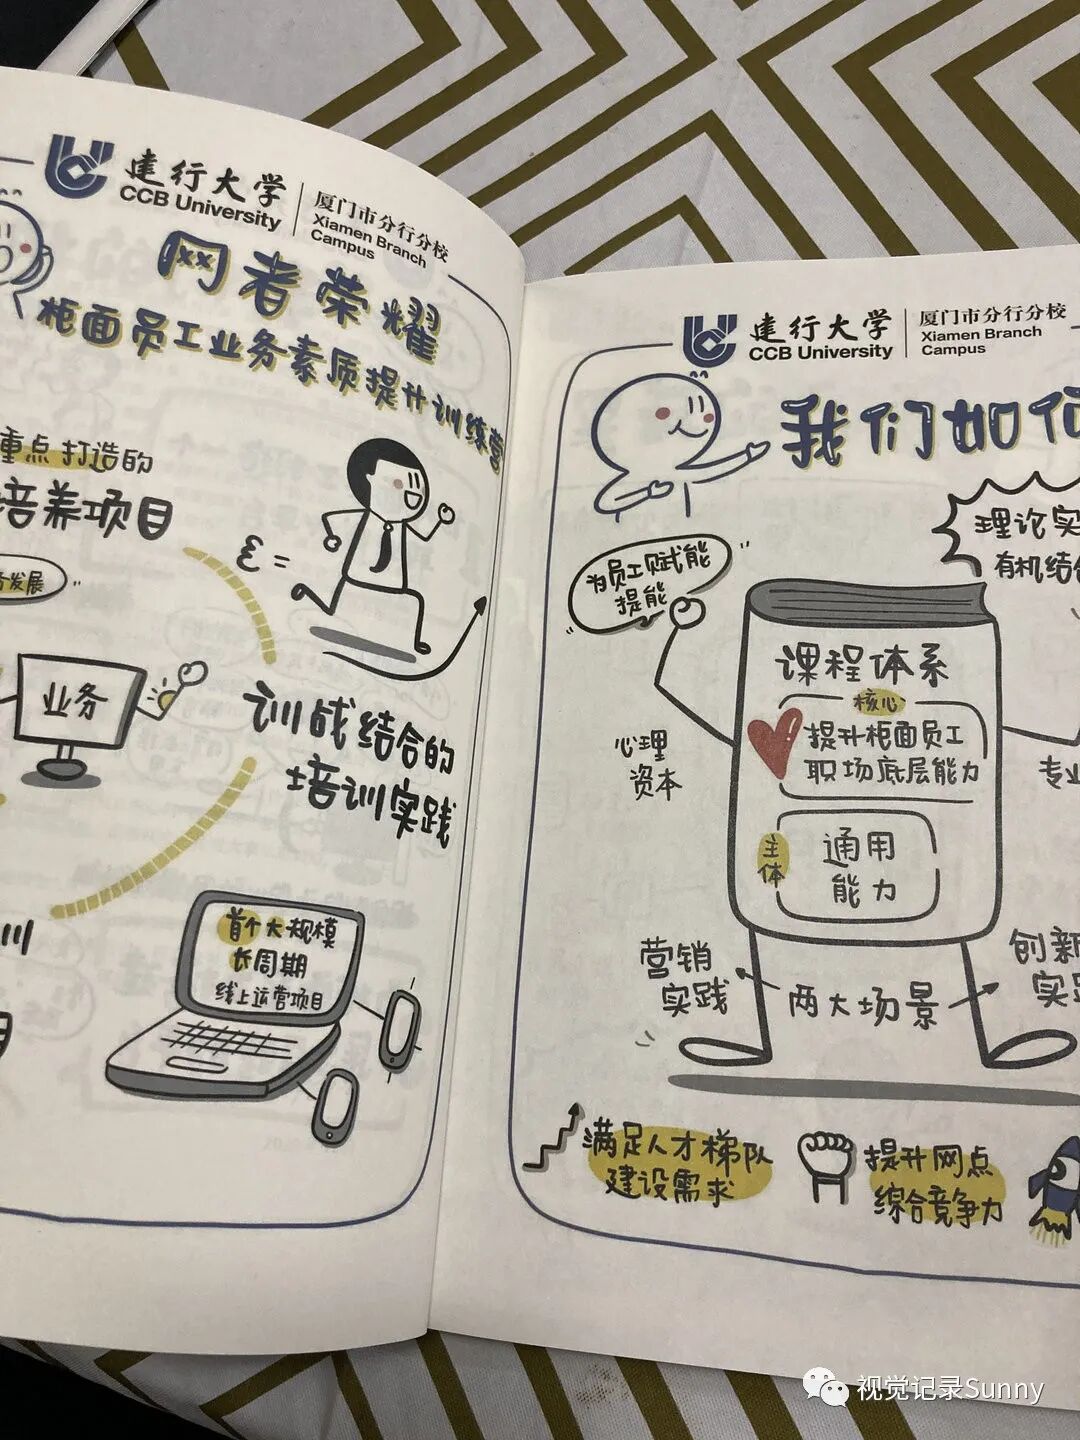 建行大学
CCB University
厦门市分行分校
Xiamen Branch
Campus
网者荣耀
柜面员工业务素质提升训练营
重点打造的
培养项目
发展
业务
训战结合的
培训实践
训
首个大规模
长周期
线上运营项目
建行大学
CCB University
厦门市分行分校
Xiamen Branch
Campus
我们如何
理论实
有机结合
为员工赋能
提能
课程体系
核心
提升柜面员工
职场底层能力
主体
通用
能力
心理
资本
专业
营销
实践
两大场景
创新
实践
满足人才梯队
建设需求
提升网点
综合竞争力
视觉记录Sunny